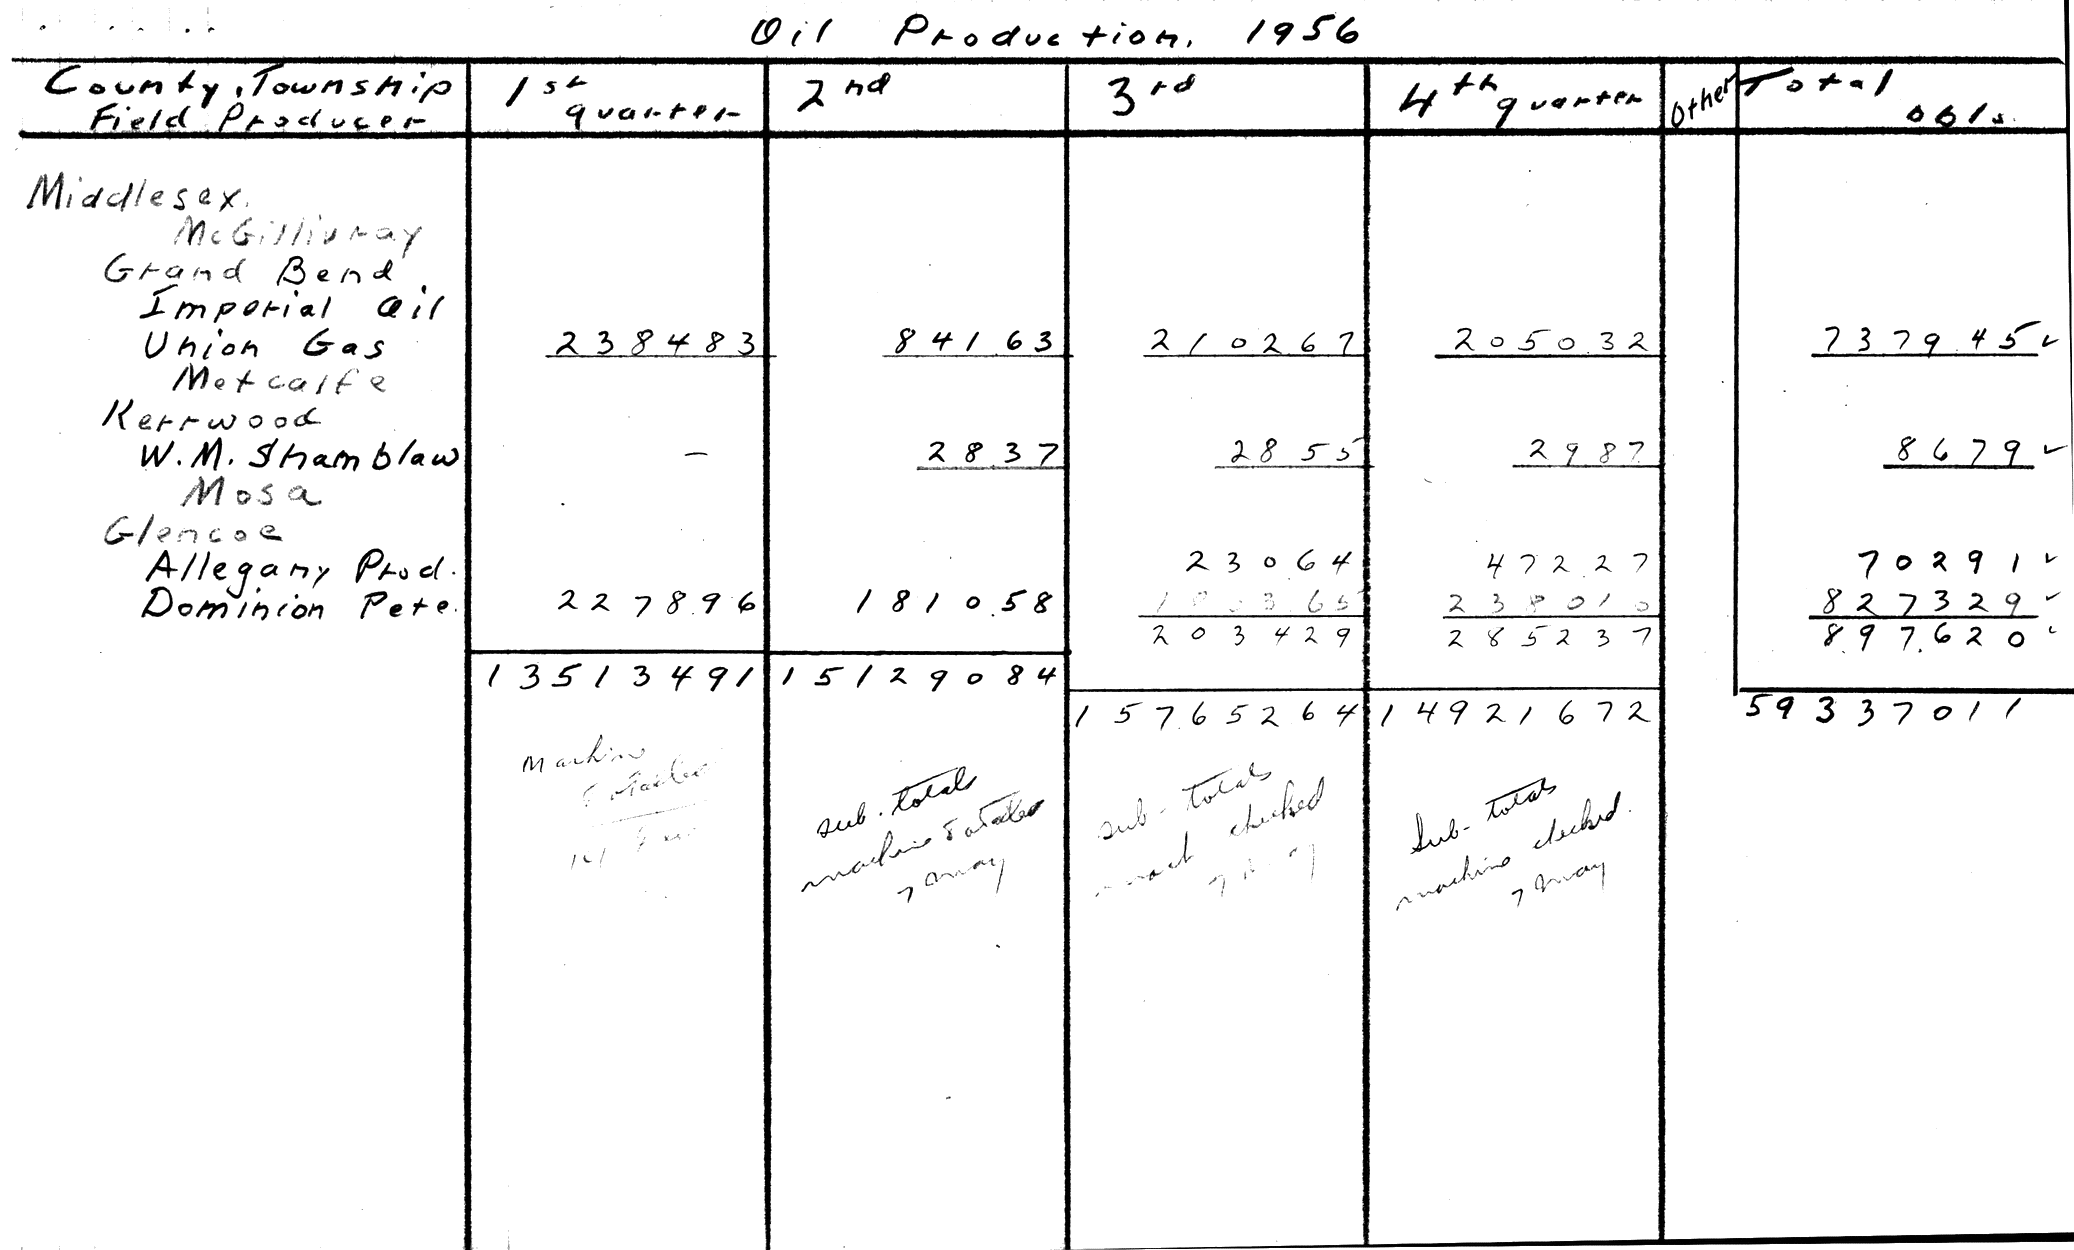 Oil Production, 1956
County, Township Field Producer 1st quarter 2nd 3rd 4th quarter Other Total bbls.
Middlesex.
McGillivray
Grand Bend
Imperial Oil
Union Gas 238483 84163 210267 205032 737945 ✓
Metcalfe
Kerrwood
W.M. Shamblaw – 2837 2855 2987 8679 ✓
Mosa
Glencoe
Allegany Prod. 23064 47227 70291 ✓
Dominion Pete. 227896 181058 180365 238010 827329 ✓
203429 285237 897620 ✓
13513491 15129084
15765264 14921672 59337011
Machine
sub-totals
machine
7 May
sub-totals
checked
7
Sub-totals
machine checked.
7 May